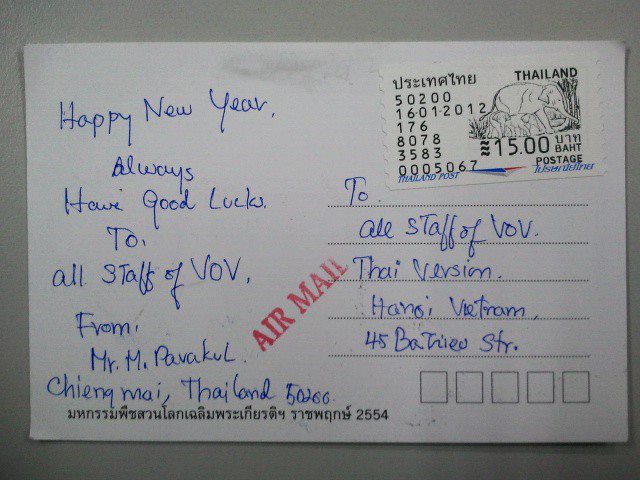 Happy New Year,
Always
Have Good Lucks
To,
all Staff of VOV,
From,
Mr. M. Pavakul.
Chiengmai, Thailand 50200
มหกรรมพืชสวนโลกเฉลิมพระเกียรติฯ ราชพฤกษ์ 2554
AIR MAIL
ประเทศไทย
THAILAND
50200
16-01-2012
176
8078
3583
0005067
≈15.00 บาท
BAHT
POSTAGE
THAILAND POST
ไปรษณีย์ไทย
To
all Staff of VOV.
Thai Version.
Hanoi Vietnam,
45 Ba Trieu Str.